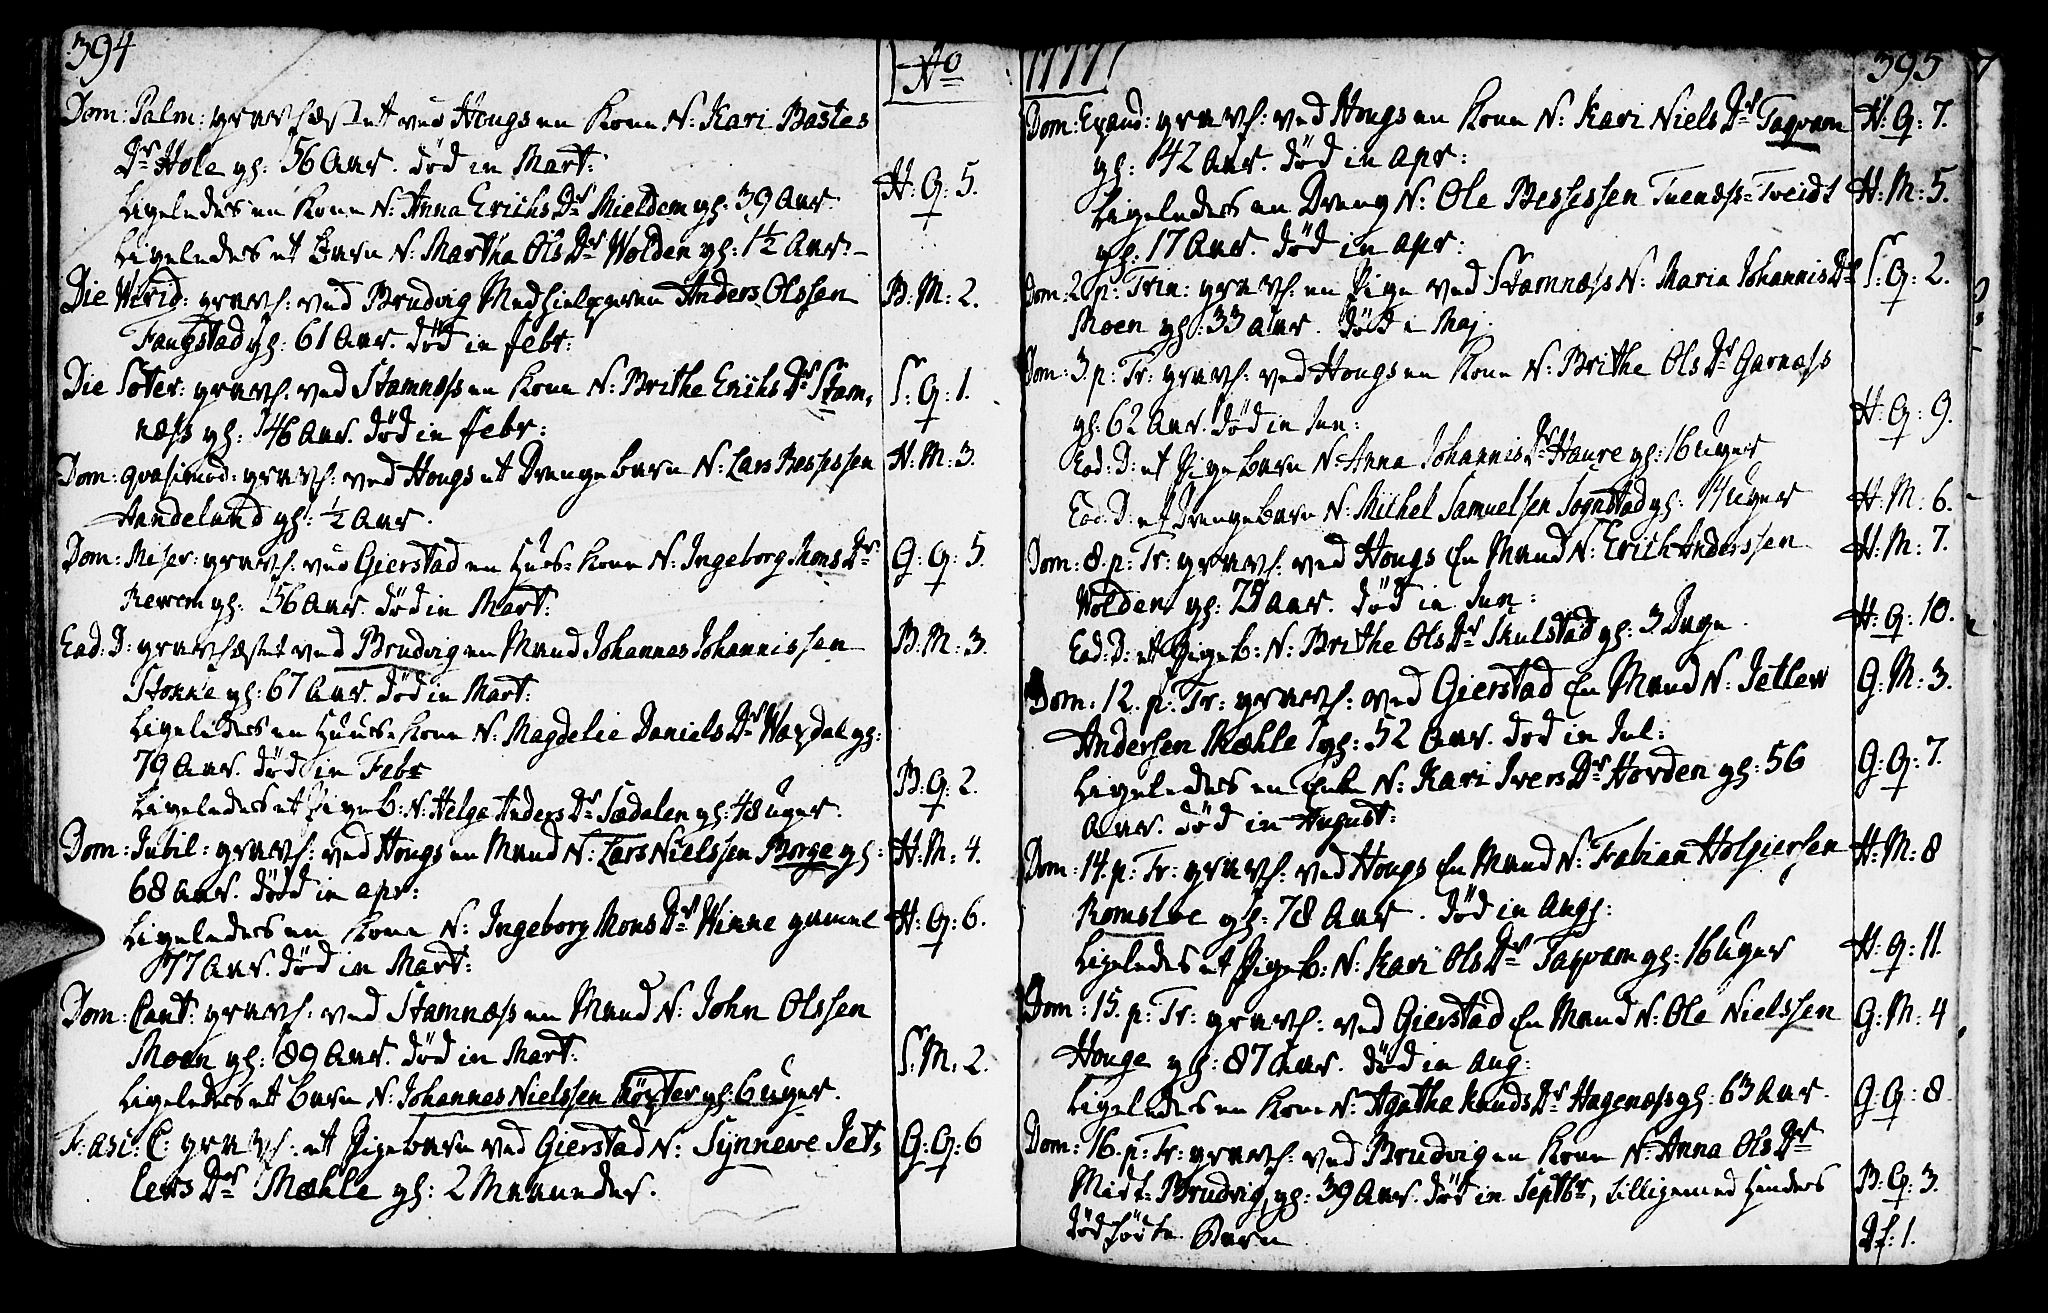 394
No
Dom: Palm: gravfæstet ved Hougs en Kone N: Kari Bastes
Dr Hole gl: 56 Aar. død in Mart:
H: Q: 5.
Ligeledes en Kone N: Anna Erichs Dr Mieldem gl: 39 Aar
Ligeledes et Barn N: Martha Ols Dr Wolden gl: 1½ Aar
Die Virid: gravf: ved Brudvig Medhielperen Anders Olssen
B: M: 2.
Faugstad gl: 61 Aar. død in febr:
Die Soter: gravf: ved Stamnæss en Kone N: Brithe Erichs Dr Stam,
S: Q: 1.
næss gl: 46 Aar. død in febr:
Dom: qvasimod: gravf: ved Hougs et Drengebarn N: Lars Bessessen
H: M: 3.
Handeland gl: ½ Aar.
Dom: Miser: gravf: ved Gierstad en Huus-Kone N: Ingeborg Mons Dr
G: Q: 5.
gl: 56 Aar. død in Mart:
Ead: D: gravfæstet ved Brudvig en Mand Johannes Johannissen
B: M: 3.
gl: 67 Aar. død in Mart:
Ligeledes en Huus-Kone N: Magdelie Daniels Dr Waxdal gl:
79 Aar. død in Febr
B: Q: 2.
Ligeledes et Pigeb: N: Helga Anders Dr Sædalen gl: 48 uger.
Dom: Jubil: gravf: ved Hougs en Mand N: Lars Nielssen Borge gl:
H: M: 4.
68 Aar. død in apr:
Ligeledes en Kone N: Ingeborg Mons Dr Winne gamel
H: Q: 6.
77 Aar. død in Mart:
Dom: Cant: gravf: ved Stamnæss en Mand N: John Olssen
Moen gl: 89 Aar. død in Mart:
S: M: 2.
Ligeledes et barn N: Johannes Nielssen gl: 6 uger.
F: asc: C: gravf: et Pigebarn ved Gierstad N: Synneve Jet,
G: Q: 6
levs Dr Mæhle gl: 2 Maaneder.
1777
395
Dom: Exaud: gravf: ved Hougs en Kone N: Kari Niels Dr Taqvam
H: Q: 7.
gl: 42 Aar. død in apr:
Ligeledes en Dreng N: Ole Bessessen Tveidt
H: M: 5.
gl: 17 Aar. død in apr:
Dom: 2. p: Trin: gravf: en Pige ved Stamnæss N: Maria Johannis Dr
S: Q: 2.
Moen gl: 33 aar. død i Maj.
Dom: 3. p: Tr: gravf: ved Hougs en Kone N: Brithe Ols Dr Garnæss
gl: 62 Aar. død in Jun:
H: Q: 9.
Ead: D: et Pigebarn N: Anna Johannis Dr Haure gl: 16 uger
Ead: D: et Drengebarn N: Michel Samuelsen Sognstad gl: 14 uger
H: M: 6.
Dom: 8. p: Tr: gravf: ved Hougs En Mand N: Erich Anderssen
H: M: 7.
Wolden gl: Aar. død in Jun:
Ead: D: et Pigeb: N: Brithe Ols Dr Skulstad gl: 3 Dage.
H: Q: 10.
Dom: 12. p: Tr: gravf: ved Gierstad En Mand N: Jetlew
G: M: 3.
Andersen Mæhle gl: 52 Aar. død in Jul:
Ligeledes en Enke N: Kari Ivers Dr Hovden gl: 56
G: Q: 7.
Aar. død in August:
Dom: 14. p: Tr: gravf: ved Hougs En Mand N: Fabian Holgiersen
H: M: 8
Romsloe gl: 78 Aar. død in Aug:
Ligeledes et Pigeb: N: Kari Ols Dr Taqvam gl: 16 Uger
H: Q: 11.
Dom: 15. p: Tr: gravf: ved Gierstad En Mand N: Ole Nielssen
G: M: 4
Houge gl: 87 Aar. død in Aug:
Ligeledes en Kone N: Agatha Knuds Dr Hagenæss gl: 63 Aar.
G: Q: 8.
Dom: 16. p: Tr: gravf: ved Brudvig en Kone N: Anna Ols Dr
Midt-Brudvig, gl: 39 Aar. død in Septbr, tilligemed Hendes
B: Q: 3.
dødfødte Barn
Df: 1.